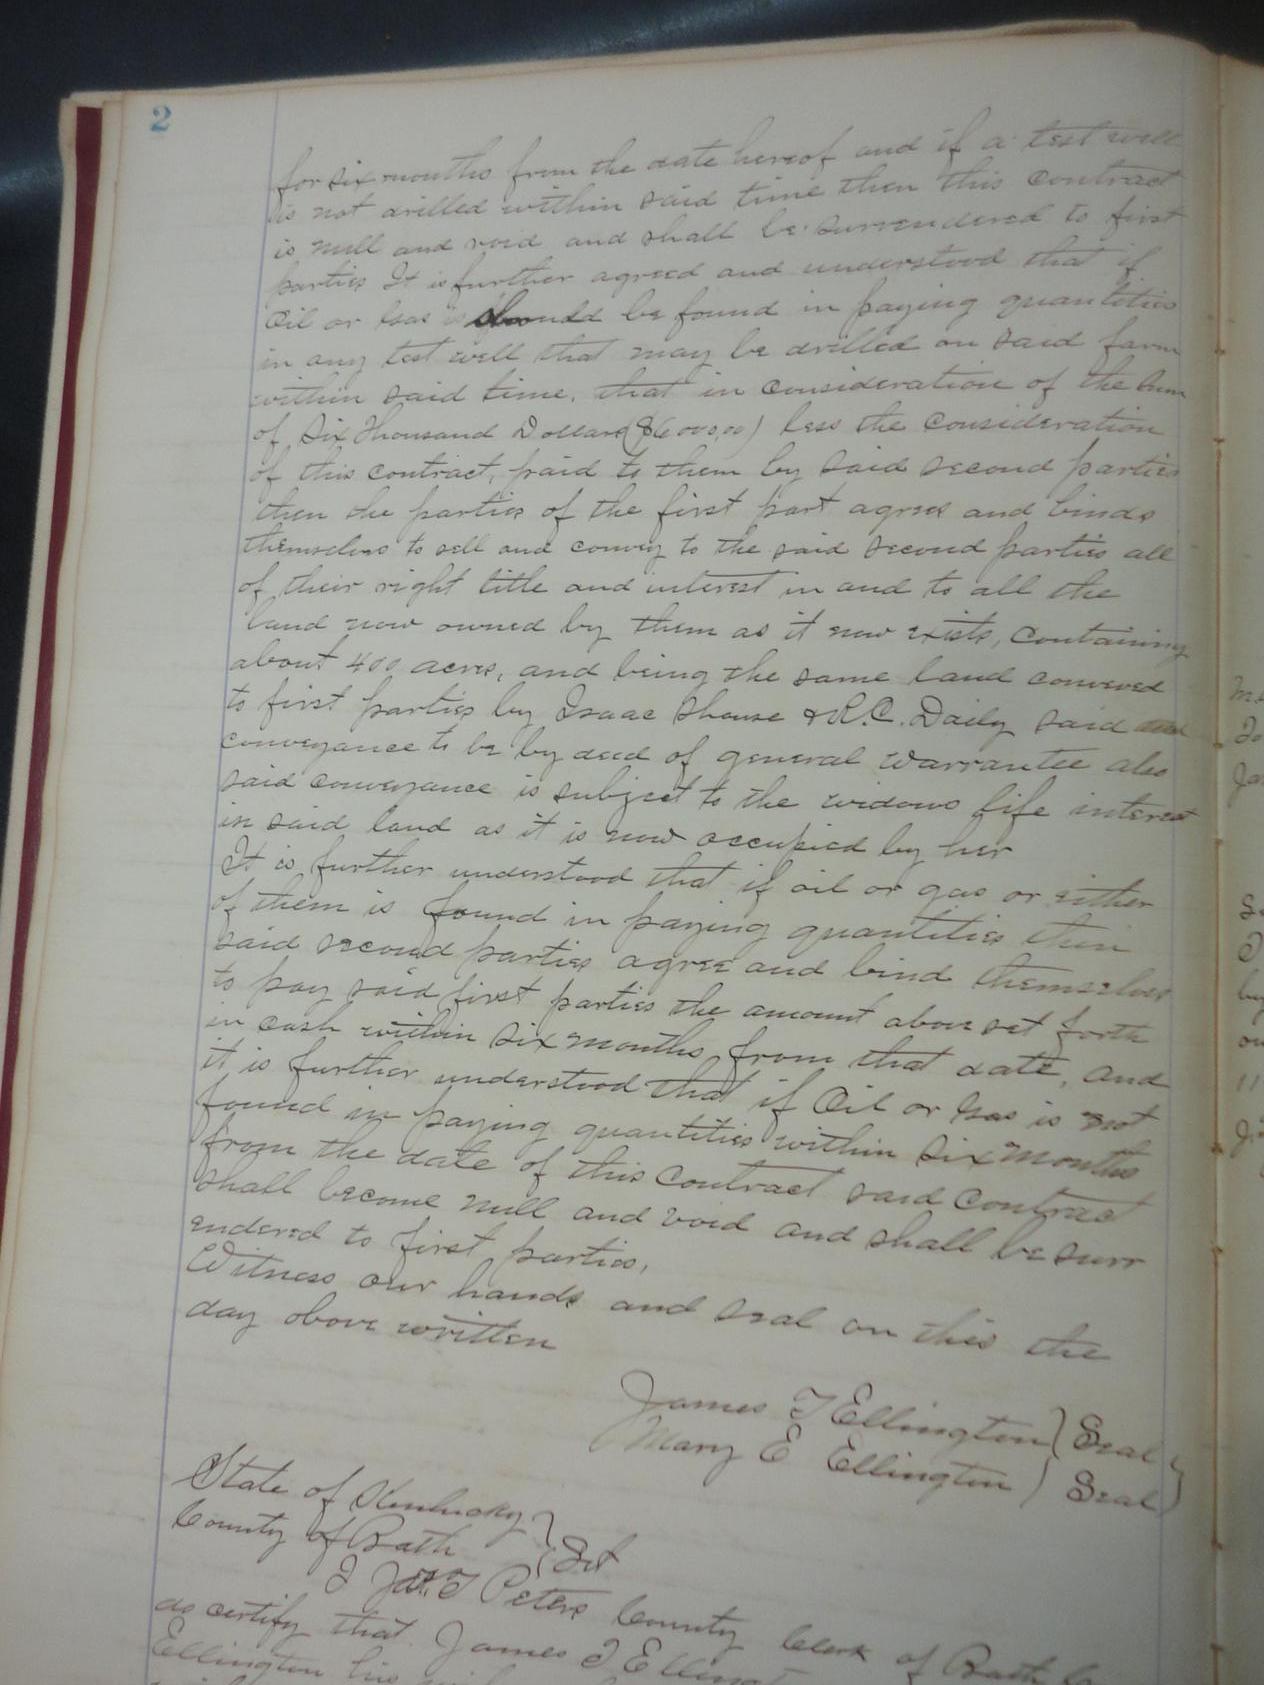 2
for six months from the date hereof and if a test well
is not drilled within said time then this contract
is null and void and shall be surrendered to first
parties It is further agreed and understood that if
Oil or Gas should be found in paying quantities
in any test well that may be drilled on said farm
within said time, that in consideration of the sum
of Six Thousand Dollars ($6000,00) less the consideration
of this contract, paid to them by said second parties
then the parties of the first part agrees and binds
themselves to sell and convey to the said second parties all
of their right title and interest in and to all the
land now owned by them as it now exists, containing
about 400 acres, and being the same land convered
to first parties by Isaac Shouse & R.C. Daily said
conveyance to be by deed of general warrantee also
said conveyance is subject to the widows life interest
in said land as it is now occupied by her
It is further understood that if oil or gas or either
of them is found in paying quantities then
said second parties agree and bind themselves
to pay said first parties the amount above set forth
in cash within six months from that date, and
it is further understood that if Oil or Gas is not
found in paying quantities within six months
from the date of this contract said contract
shall become null and void and shall be surr
endered to first parties,
Witness our hands and seal on this the
day above written
James T Ellington } Seal }
Mary E Ellington } Seal }
State of Kentucky }
County of Bath } Sct
I Jas. T Peters County Clerk of Bath Co
do certify that James T Ellingt
Ellington his